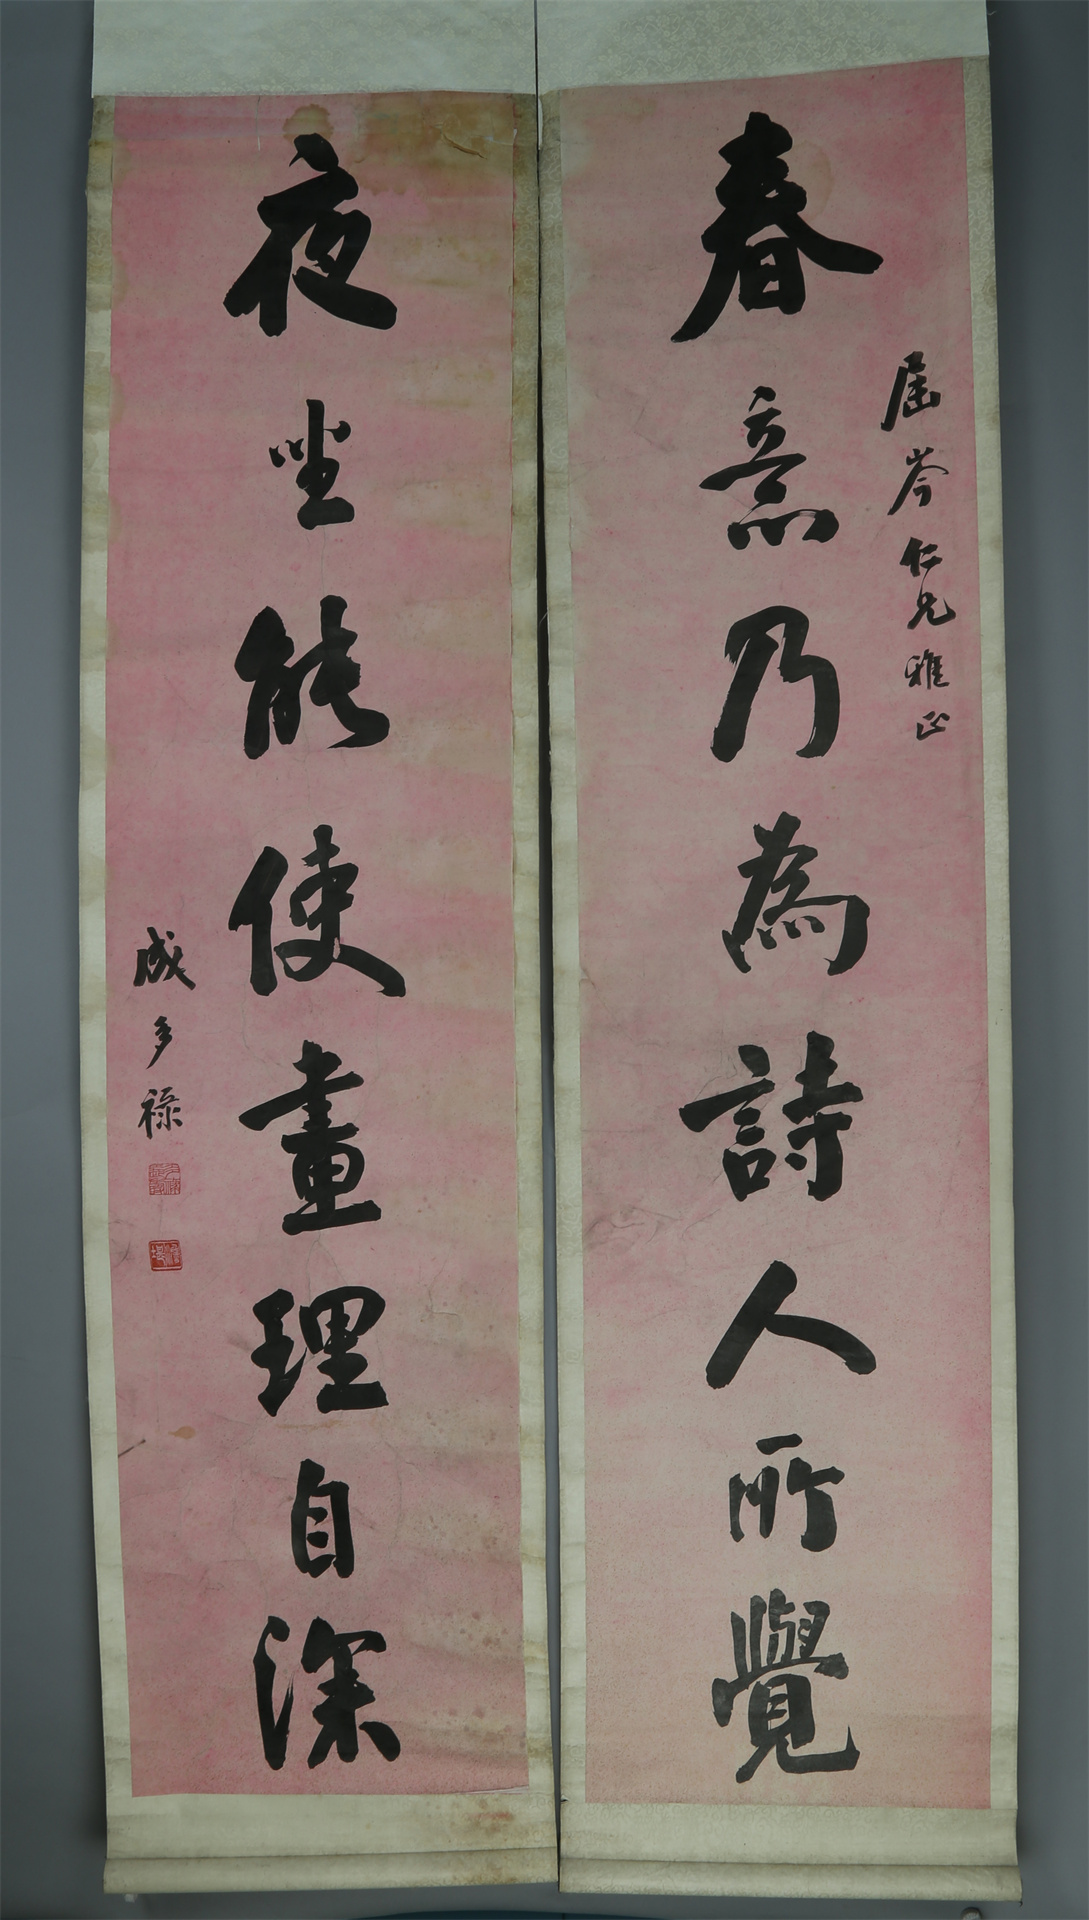 春意乃為詩人所覺
屆岑仁兄雅正
夜坐能使畫理自深
成多祿